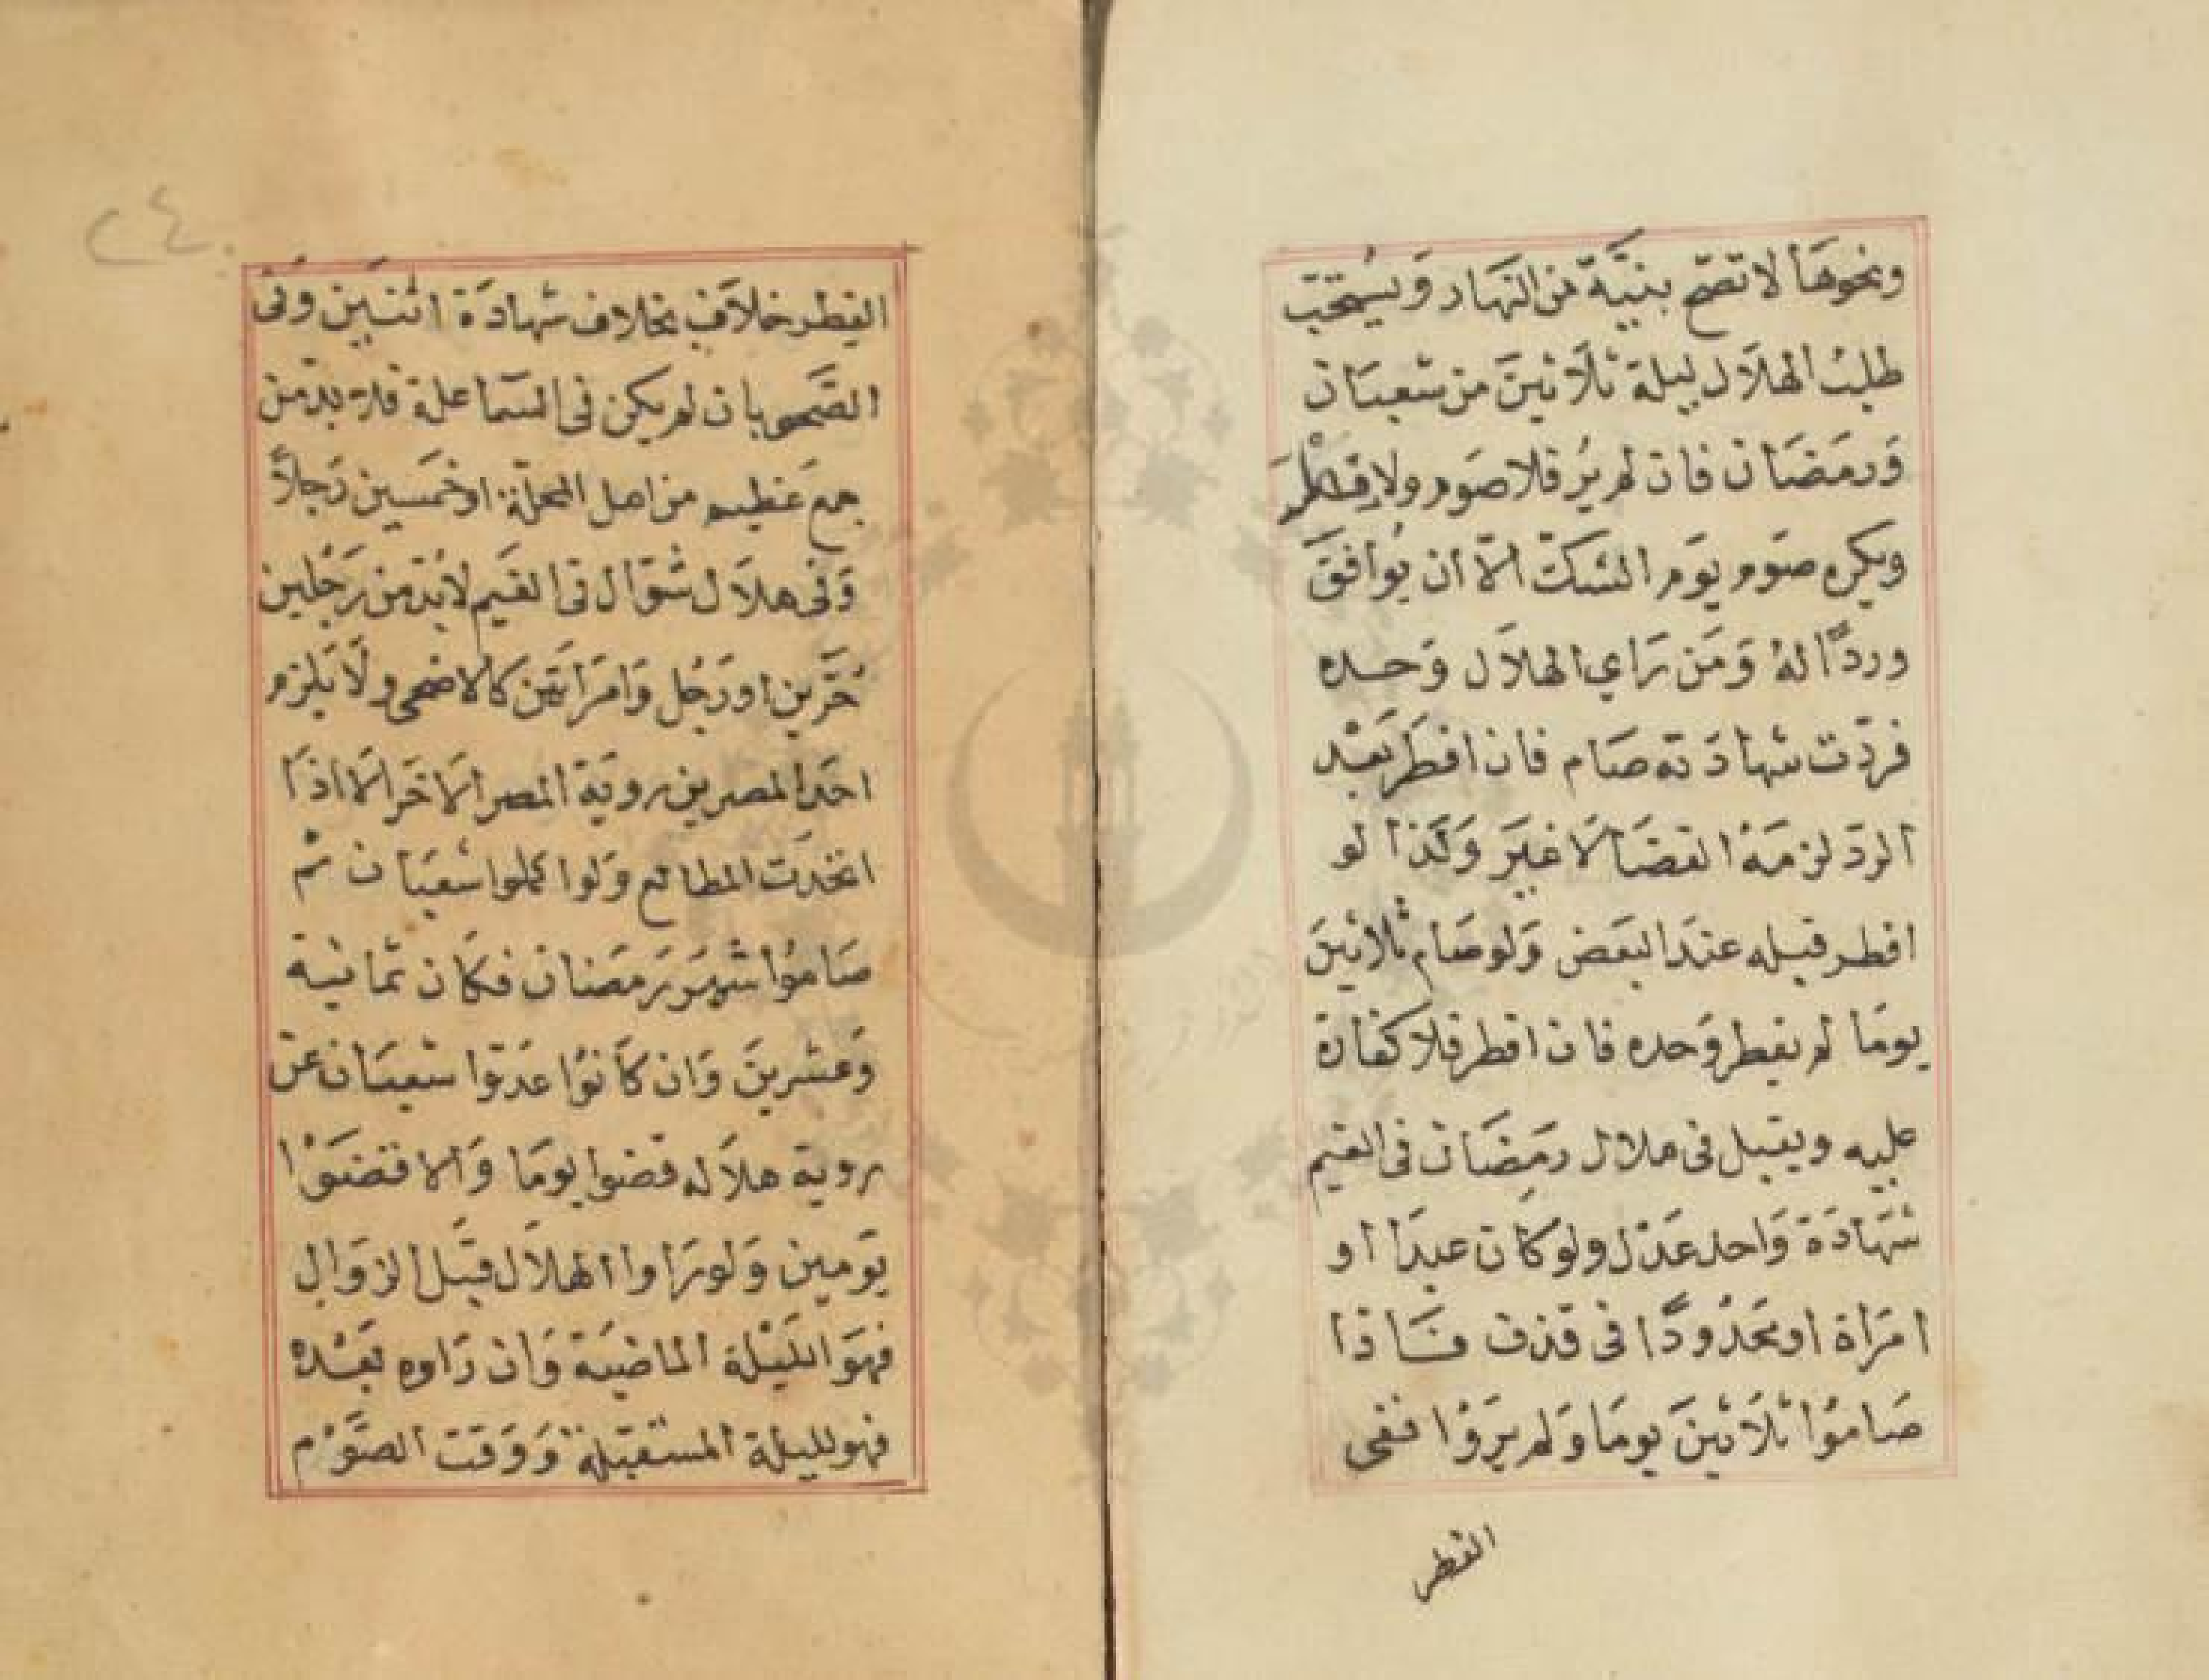 ونحوهَا لا تصحّ بنيَّة من النهَار وَيُستحَبّ
طلبُ الهلَال ليلة ثلَاثينَ من شعبَان
وَرمَضَان فان لم يُر فلا صَوم ولا فِطْر
ويكره صَوم يوَم الشكّ الّا ان يُوافقَ
وردًّا لهُ وَمَن رَاي الهلَال وَحده
فردّت شهادَته صَام فان افطَر بَعْد
الردّ لزمَهُ القضَا لَا غيَر وَكذَا لو
افطر قبله عندَ البَعض وَلو صَام ثلاثينَ
يومًا لم يفطر وَحده فان افطر فلا كفارة
عليه ويقبل في هلال رمَضَان في الغيم
شهَادَة وَاحد عَدْل ولو كَان عبدًا او
امرَاة او محَدُودًا في قذف فَاذا
صَامُوا ثلَاثينَ يومًا وَلم يرَوْا ففي
الفطر
٢٤
الفِطر خلَاف بخلاف شهادَة اثنَين وَفي
الصَّحو بان لم يكن في السّما علة فلا بدّ من
جمع عَظيم من اهل المحلّة او خمَسين رَجلًا
وَفي هلَال شوّال في الغَيم لا بُدّ من رَجُلين
حُرَّين او رَجُل وَامرَاتَين كالاضحى ولَا يَلزم
احَد المصرين روية المصر الَاخَر الّا اذَا
اتحَدَت المطالع وَلو اكملوا شعبَان ثمّ
صَامُوا شهرَ رَمضَان فكَان ثمانية
وَعشرينَ وَان كَانوُا عَدّوا شعبَان عن
روية هلَاله قضوا يومًا وَالا قضَوْا
يوَمين وَلو رَاوا الهلَال قبَل الزوَال
فهوَ الليْلة الماضيَة وَان رَاوه بعَْده
فهو لليلة المستقبلة وَوَقت الصَّوْم